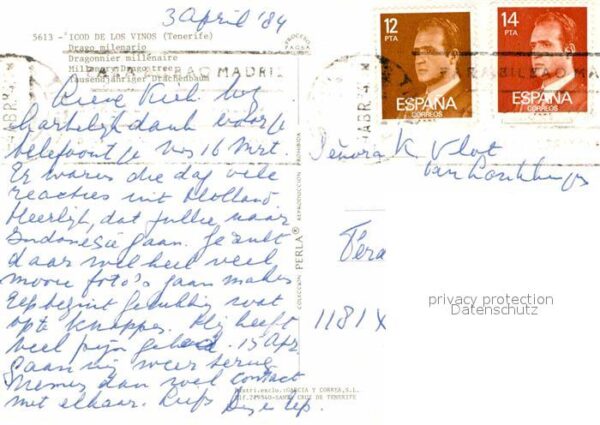 3 April '84
5613 - ICOD DE LOS VINOS (Tenerife)
Drago milenario
Dragonnier millénaire
Millenary Drago tree
Tausendjähriger Drachenbaum
PROCESO
FAGRA
12
PTA
ESPAÑA
CORREOS
14
PTA
ESPAÑA
CORREOS
MADRID
Lieve Kick. Nog
hartelijk dank voor je
telefoontje van 16 Mrt.
Er waren die dag vele
reacties uit Holland.
Heerlijk, dat jullie naar
Indonesië gaan. Je zult
daar wel heel veel
mooie foto's gaan maken
Lep begint gelukkig wat
op te knappen. Hij heeft
veel pijn gehad. 15 Apr.
Gaan wij weer terug
Nemen dan wel contact
met elkaar. Liefs
COLECCION PERLA® REPRODUCCION PROHIBIDA
Señora K. Vlot
Pera
1181 X
privacy protection
Datenschutz
Distri.exclu. GARCIA Y CORREA, S.L.
SANTA CRUZ DE TENERIFE